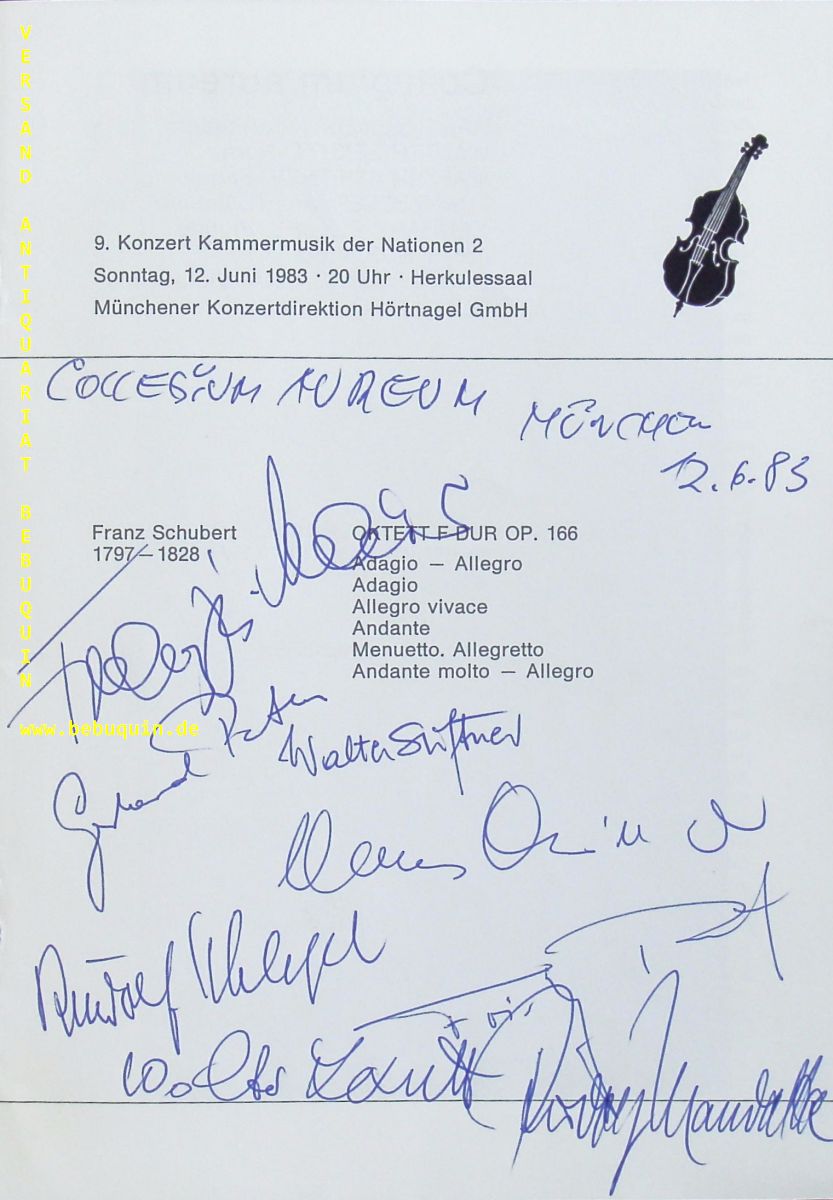 VERSAND ANTIQUARIAT BEBUQUIN
9. Konzert Kammermusik der Nationen 2
Sonntag, 12. Juni 1983 · 20 Uhr · Herkulessaal
Münchener Konzertdirektion Hörtnagel GmbH
COLLEGIUM AUREUM
MÜNCHEN
12.6.83
Franz Schubert
1797–1828
OKTETT F-DUR OP. 166
Adagio – Allegro
Adagio
Allegro vivace
Andante
Menuetto. Allegretto
Andante molto – Allegro
Franzjosef Maier
www.bebuquin.de
Gerhard Peters
Walter Stiftner
Rudolf
Wolter
Rudolf Mandalka